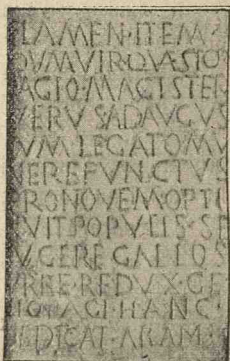 LAMEN·ITEM·
DVMVIR·QVAESTO
AGIO·MAGISTER
VERVS·AD·AVGVS
VM·LEGATO·MV
NERE·FVNCTVS
PRO·NOVEM·OPTI
VIT·POPVLIS·SE
GERE·GALLOS
VRBE·REDVX·GE
IO·PAGI·HANC·
DEDICAT·ARAM